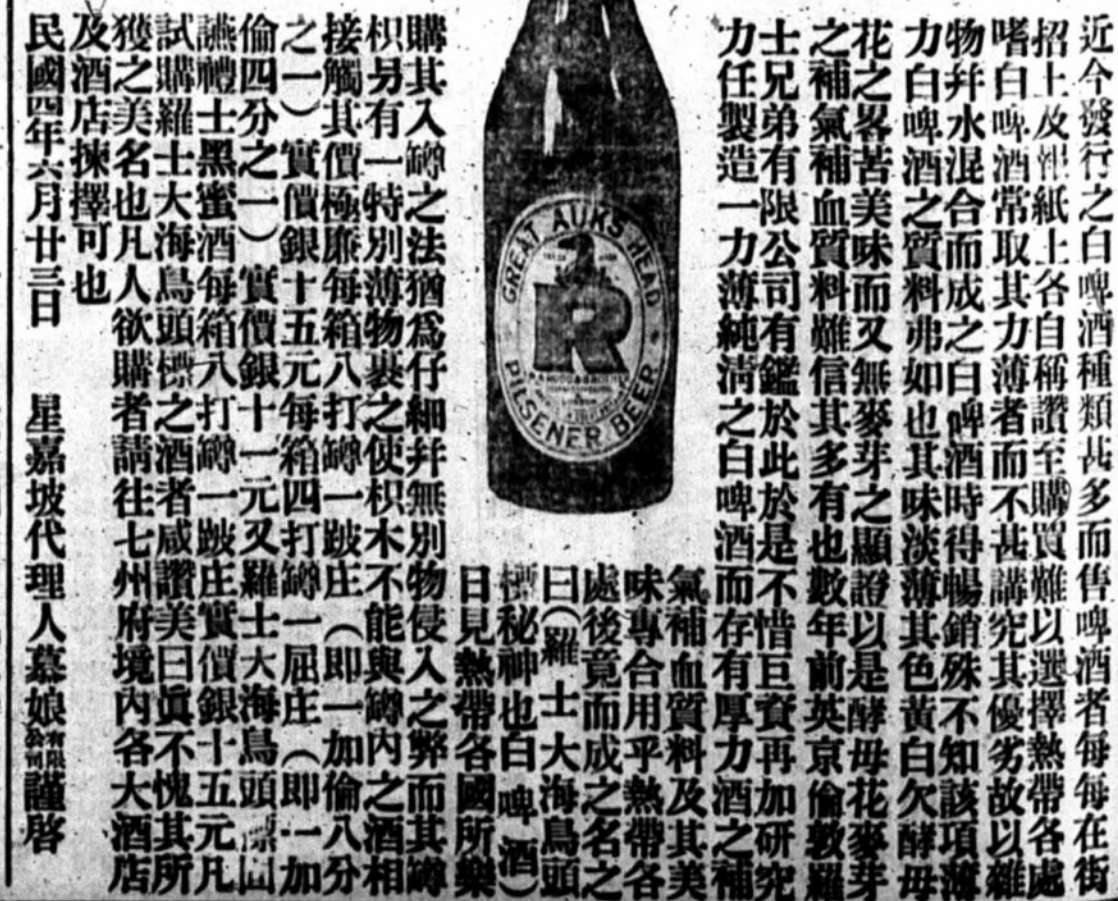 近今發行之白啤酒種類甚多而售啤酒者每每在街
招上及報紙上各自稱讚至購買難以選擇熱帶各處
嗜白啤酒常取其力薄者而不甚講究其優劣故以雜
物幷水混合而成之白啤酒時得暢銷殊不知該項薄
力白啤酒之質料弗如也其味淡薄其色黃白欠酵毋
花之畧苦美味而又無麥芽之顯證以是酵毋花麥芽
之補氣補血質料難信其多有也數年前英京倫敦羅
士兄弟有限公司有鑑於此於是不惜巨資再加研究
力任製造一力薄純淸之白啤酒而存有厚力酒之補
氣補血質料及其美
味專合用乎熱帶各
處後竟而成之名之
曰（羅士大海鳥頭
標秘神也白啤酒）
日見熱帶各國所樂
GREAT AUKS HEAD
R
PILSENER BEER
購其入罇之法猶爲仔細幷無別物侵入之弊而其罇
枳另有一特別薄物裹之使枳木不能與罇內之酒相
接觸其價極廉每箱八打罇一跛庄（即一加倫八分
之一）實價銀十五元每箱四打罇一屈庄（即一加
倫四分之一）實價銀十一元又羅士大海鳥頭標囸
讌禮士黑蜜酒每箱八打罇一跛庄實價銀十五元凡
試購羅士大海鳥頭標之酒者咸讚美曰眞不愧其所
獲之美名也凡人欲購者請往七州府境內各大酒店
及酒店揀擇可也
民國四年六月廿三日　星嘉坡代理人慕娘有限公司謹啓